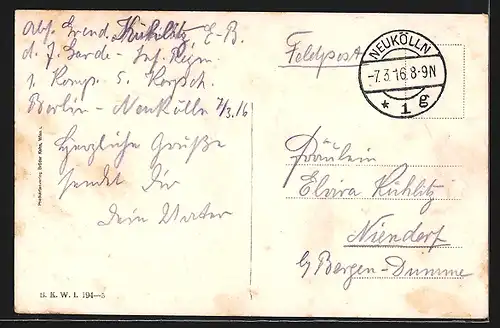 Abs. Grend. Kühlitz E-B.
d. 7. Garde-Inf. Regm.
1. Komp. 5. Korpsch.
Berlin-Neukölln 7/3.16
Herzliche Grüße
sendet Dir
dein Vater
Feldpost
NEUKÖLLN
-7.3.16.8-9N
* 1 g
Fräulein
Elvira Kühlitz
Niendorf
b/ Bergen-Dumme
B. K. W. I. 194-5